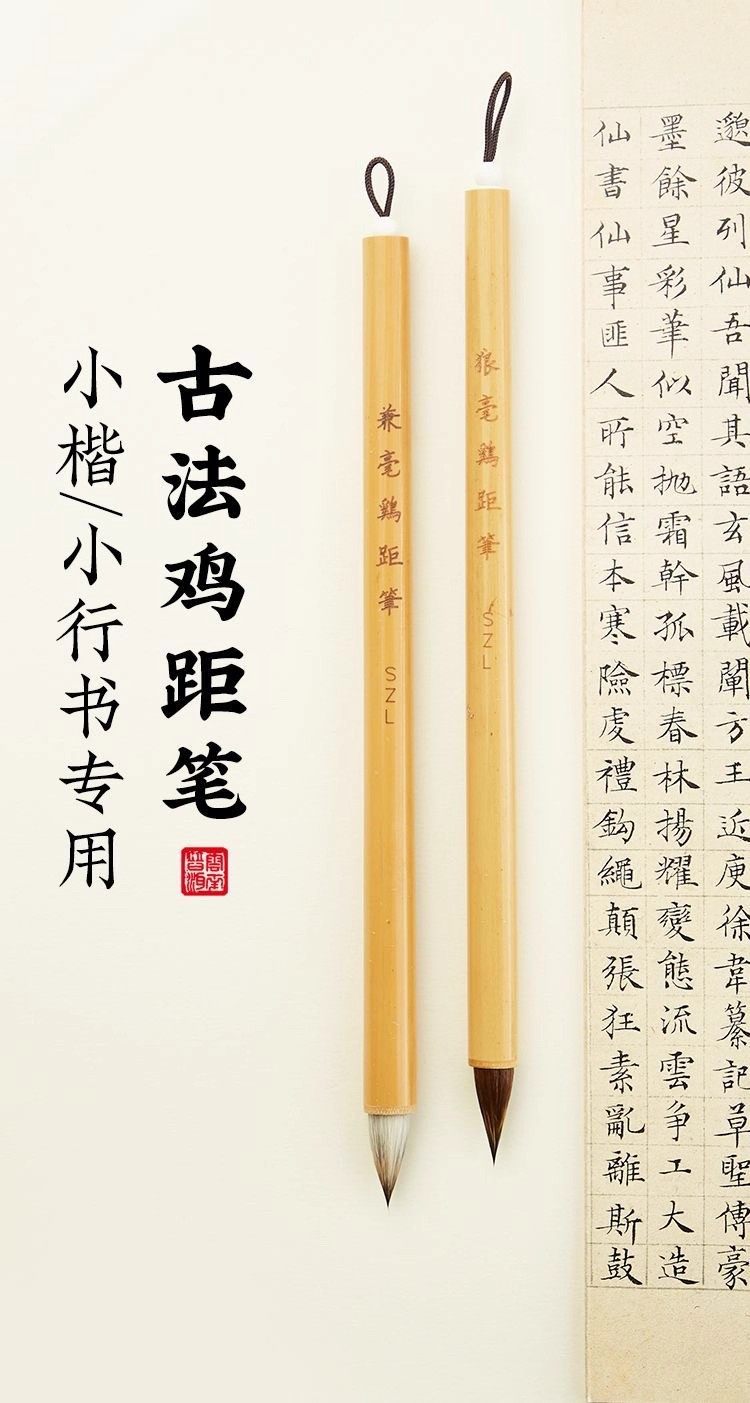 古法鸡距笔
小楷/小行书专用
兼毫鷄距筆
SZL
狼毫鷄距筆
SZL
邈彼列仙吾聞其語玄風載闡方王近庾徐韋纂記草聖傳豪
墨餘星彩筆似空抛霜幹孤標春林揚耀變態流雲争工大造
仙書仙事匪人所能信本寒險虔禮鈎繩顛張狂素亂離斯鼓